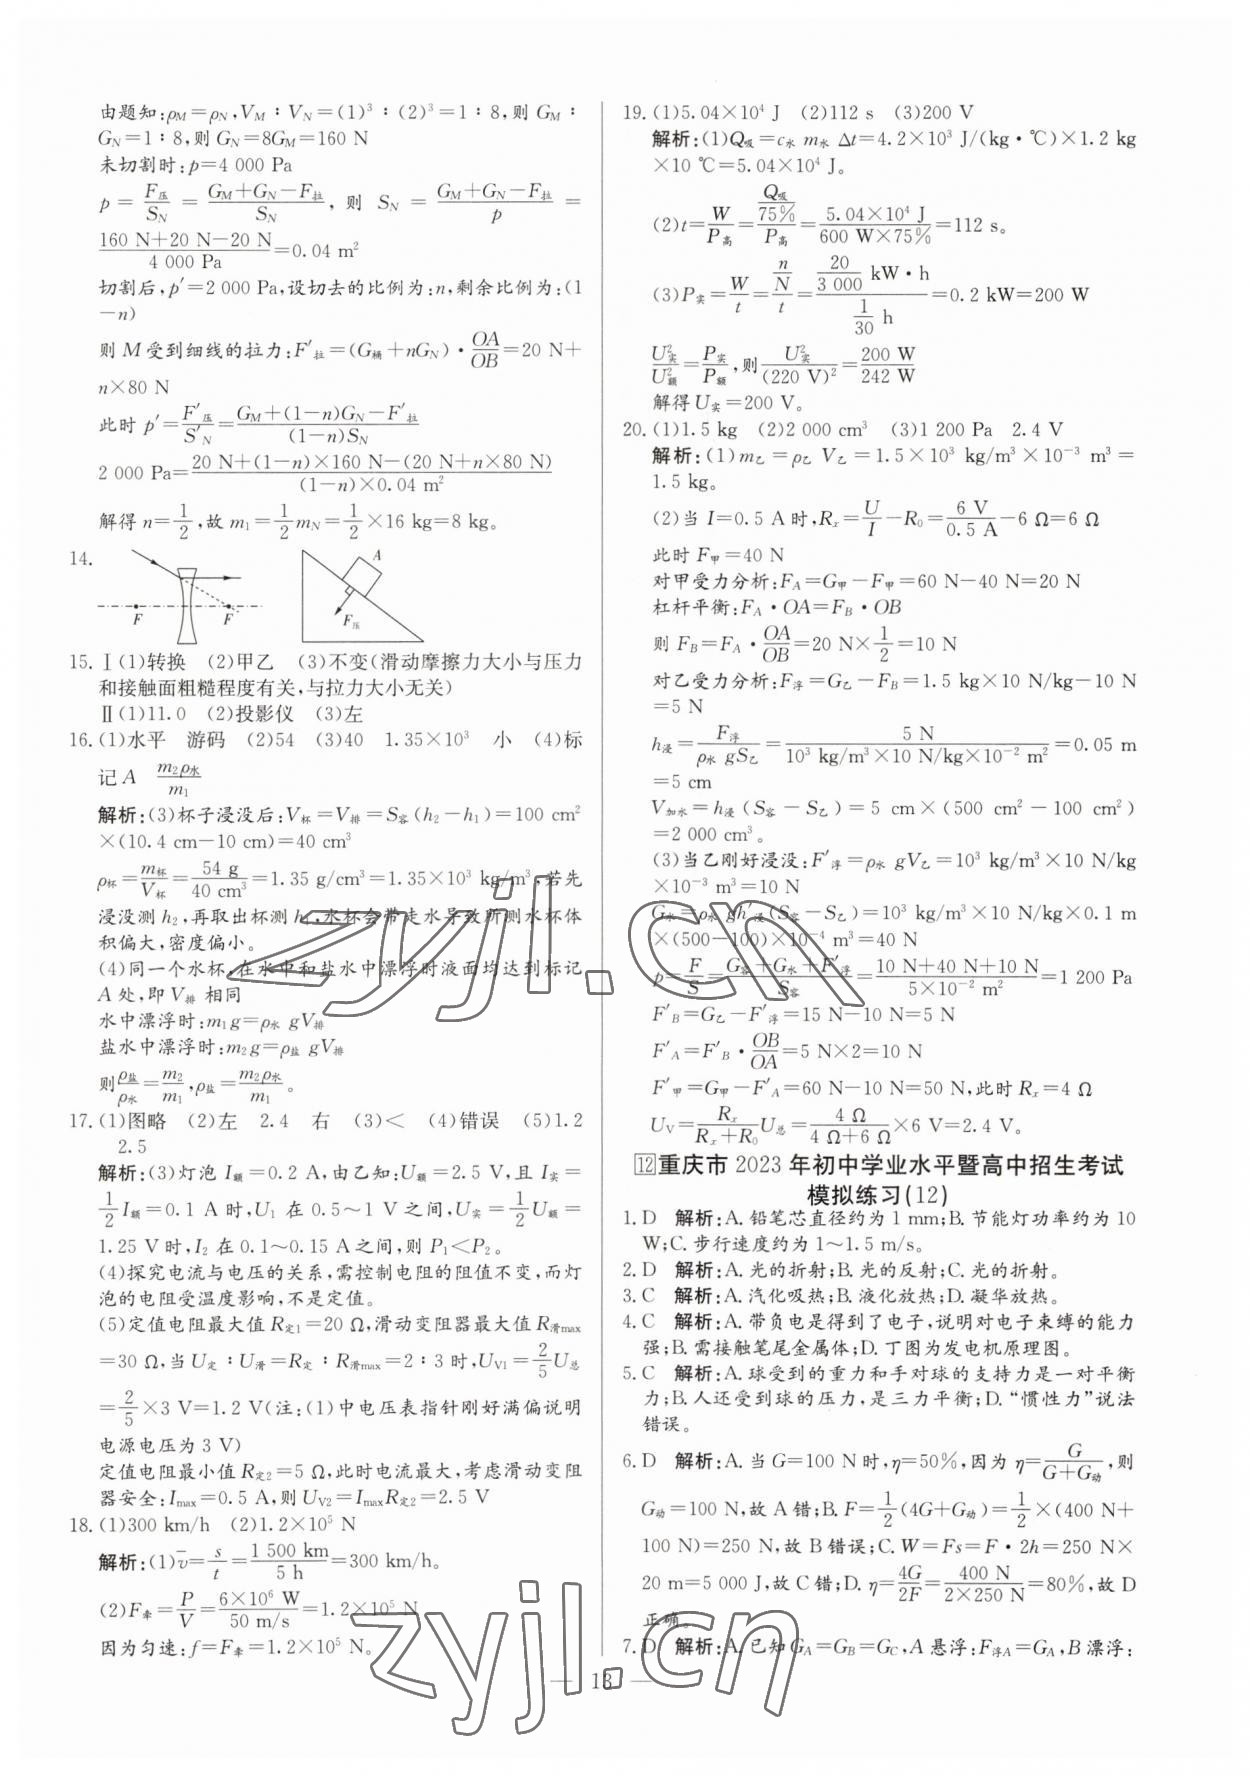 由题知:ρM=ρN,VM∶VN=(1)³∶(2)³=1∶8,则 GM∶
GN=1∶8,则 GN=8GM=160 N
未切割时:p=4 000 Pa
p=F压/SN=(GM+GN-F拉)/SN,则 SN=(GM+GN-F拉)/p=
(160 N+20 N-20 N)/(4 000 Pa)=0.04 m²
切割后,p′=2 000 Pa,设切去的比例为:n,剩余比例为:(1
-n)
则 M 受到细线的拉力:F′拉=(G桶+nGN)·OA/OB=20 N+
n×80 N
此时 p′=F′压/S′N=(GM+(1-n)GN-F′拉)/((1-n)SN)
2 000 Pa=(20 N+(1-n)×160 N-(20 N+n×80 N))/((1-n)×0.04 m²)
解得 n=1/2,故 m1=1/2 mN=1/2×16 kg=8 kg。
14.
F F A F压
15. Ⅰ(1)转换 (2)甲乙 (3)不变(滑动摩擦力大小与压力
和接触面粗糙程度有关,与拉力大小无关)
Ⅱ(1)11.0 (2)投影仪 (3)左
16. (1)水平 游码 (2)54 (3)40 1.35×10³ 小 (4)标
记 A m2ρ水/m1
解析:(3)杯子浸没后:V杯=V排=S容(h2-h1)=100 cm²
×(10.4 cm-10 cm)=40 cm³
ρ杯=m杯/V杯=54 g/40 cm³=1.35 g/cm³=1.35×10³ kg/m³,若先
浸没测 h2,再取出杯测 h1,水杯会带走水导致所测水杯体
积偏大,密度偏小。
(4)同一个水杯,在水中和盐水中漂浮时液面均达到标记
A 处,即 V排 相同
水中漂浮时:m1g=ρ水 gV排
盐水中漂浮时:m2g=ρ盐 gV排
则ρ盐/ρ水=m2/m1,ρ盐=m2ρ水/m1。
17. (1)图略 (2)左 2.4 右 (3)< (4)错误 (5)1.2
2.5
解析:(3)灯泡 I额=0.2 A,由乙知:U额=2.5 V,且 I实=
1/2 I额=0.1 A 时,U1 在 0.5～1 V 之间,U实=1/2 U额=
1.25 V 时,I2 在 0.1～0.15 A 之间,则 P1<P2。
(4)探究电流与电压的关系,需控制电阻的阻值不变,而灯
泡的电阻受温度影响,不是定值。
(5)定值电阻最大值 R定1=20 Ω,滑动变阻器最大值 R滑max
=30 Ω,当 U定∶U滑=R定∶R滑max=2∶3 时,UV1=2/5 U总
=2/5×3 V=1.2 V(注:(1)中电压表指针刚好满偏说明
电源电压为 3 V)
定值电阻最小值 R定2=5 Ω,此时电流最大,考虑滑动变阻
器安全:Imax=0.5 A,则 UV2=ImaxR定2=2.5 V
18. (1)300 km/h (2)1.2×10⁵ N
解析:(1)v̄=s/t=1 500 km/5 h=300 km/h。
(2)F牵=P/V=6×10⁶ W/50 m/s=1.2×10⁵ N
因为匀速:f=F牵=1.2×10⁵ N。
19. (1)5.04×10⁴ J (2)112 s (3)200 V
解析:(1)Q吸=c水 m水 Δt=4.2×10³ J/(kg·℃)×1.2 kg
×10 ℃=5.04×10⁴ J。
(2)t=W/P高=(Q吸/75%)/P高=5.04×10⁴ J/(600 W×75%)=112 s。
(3)P实=W/t=(n/N)/t=(20/3 000 kW·h)/(1/30 h)=0.2 kW=200 W
U²实/U²额=P实/P额,则U²实/(220 V)²=200 W/242 W
解得 U实=200 V。
20. (1)1.5 kg (2)2 000 cm³ (3)1 200 Pa 2.4 V
解析:(1)m乙=ρ乙 V乙=1.5×10³ kg/m³×10⁻³ m³=
1.5 kg。
(2)当 I=0.5 A 时,Rx=U/I-R0=6 V/0.5 A-6 Ω=6 Ω
此时 F甲=40 N
对甲受力分析:FA=G甲-F甲=60 N-40 N=20 N
杠杆平衡:FA·OA=FB·OB
则 FB=FA·OA/OB=20 N×1/2=10 N
对乙受力分析:F浮=G乙-FB=1.5 kg×10 N/kg-10 N
=5 N
h浸=F浮/(ρ水 gS乙)=5 N/(10³ kg/m³×10 N/kg×10⁻² m²)=0.05 m
=5 cm
V加水=h浸(S容-S乙)=5 cm×(500 cm²-100 cm²)
=2 000 cm³。
(3)当乙刚好浸没:F′浮=ρ水 gV乙=10³ kg/m³×10 N/kg
×10⁻³ m³=10 N
G水=ρ水 gh′浸(S容-S乙)=10³ kg/m³×10 N/kg×0.1 m
×(500-100)×10⁻⁴ m³=40 N
p=F/S=(G容+G水+F′浮)/S容=(10 N+40 N+10 N)/(5×10⁻² m²)=1 200 Pa
F′B=G乙-F′浮=15 N-10 N=5 N
F′A=F′B·OB/OA=5 N×2=10 N
F′甲=G甲-F′A=60 N-10 N=50 N,此时 Rx=4 Ω
UV=Rx/(Rx+R0) U总=4 Ω/(4 Ω+6 Ω)×6 V=2.4 V。
12 重庆市 2023 年初中学业水平暨高中招生考试
模拟练习(12)
1. D 解析:A. 铅笔芯直径约为 1 mm;B. 节能灯功率约为 10
W;C. 步行速度约为 1～1.5 m/s。
2. D 解析:A. 光的折射;B. 光的反射;C. 光的折射。
3. C 解析:A. 汽化吸热;B. 液化放热;D. 凝华放热。
4. C 解析:A. 带负电是得到了电子,说明对电子束缚的能力
强;B. 需接触笔尾金属体;D. 丁图为发电机原理图。
5. C 解析:A. 球受到的重力和手对球的支持力是一对平衡
力;B. 人还受到球的压力,是三力平衡;D. “惯性力”说法
错误。
6. D 解析:A. 当 G=100 N 时,η=50%,因为 η=G/(G+G动),则
G动=100 N,故 A 错;B. F=1/2(4G+G动)=1/2×(400 N+
100 N)=250 N,故 B 错误;C. W=Fs=F·2h=250 N×
20 m=5 000 J,故 C 错;D. η=4G/2F=400 N/(2×250 N)=80%,故 D
正确。
7. D 解析:A. 已知 GA=GB=GC,A 悬浮:F浮A=GA,B 漂浮:
— 13 —
zyjl.cn
zyjl.cn